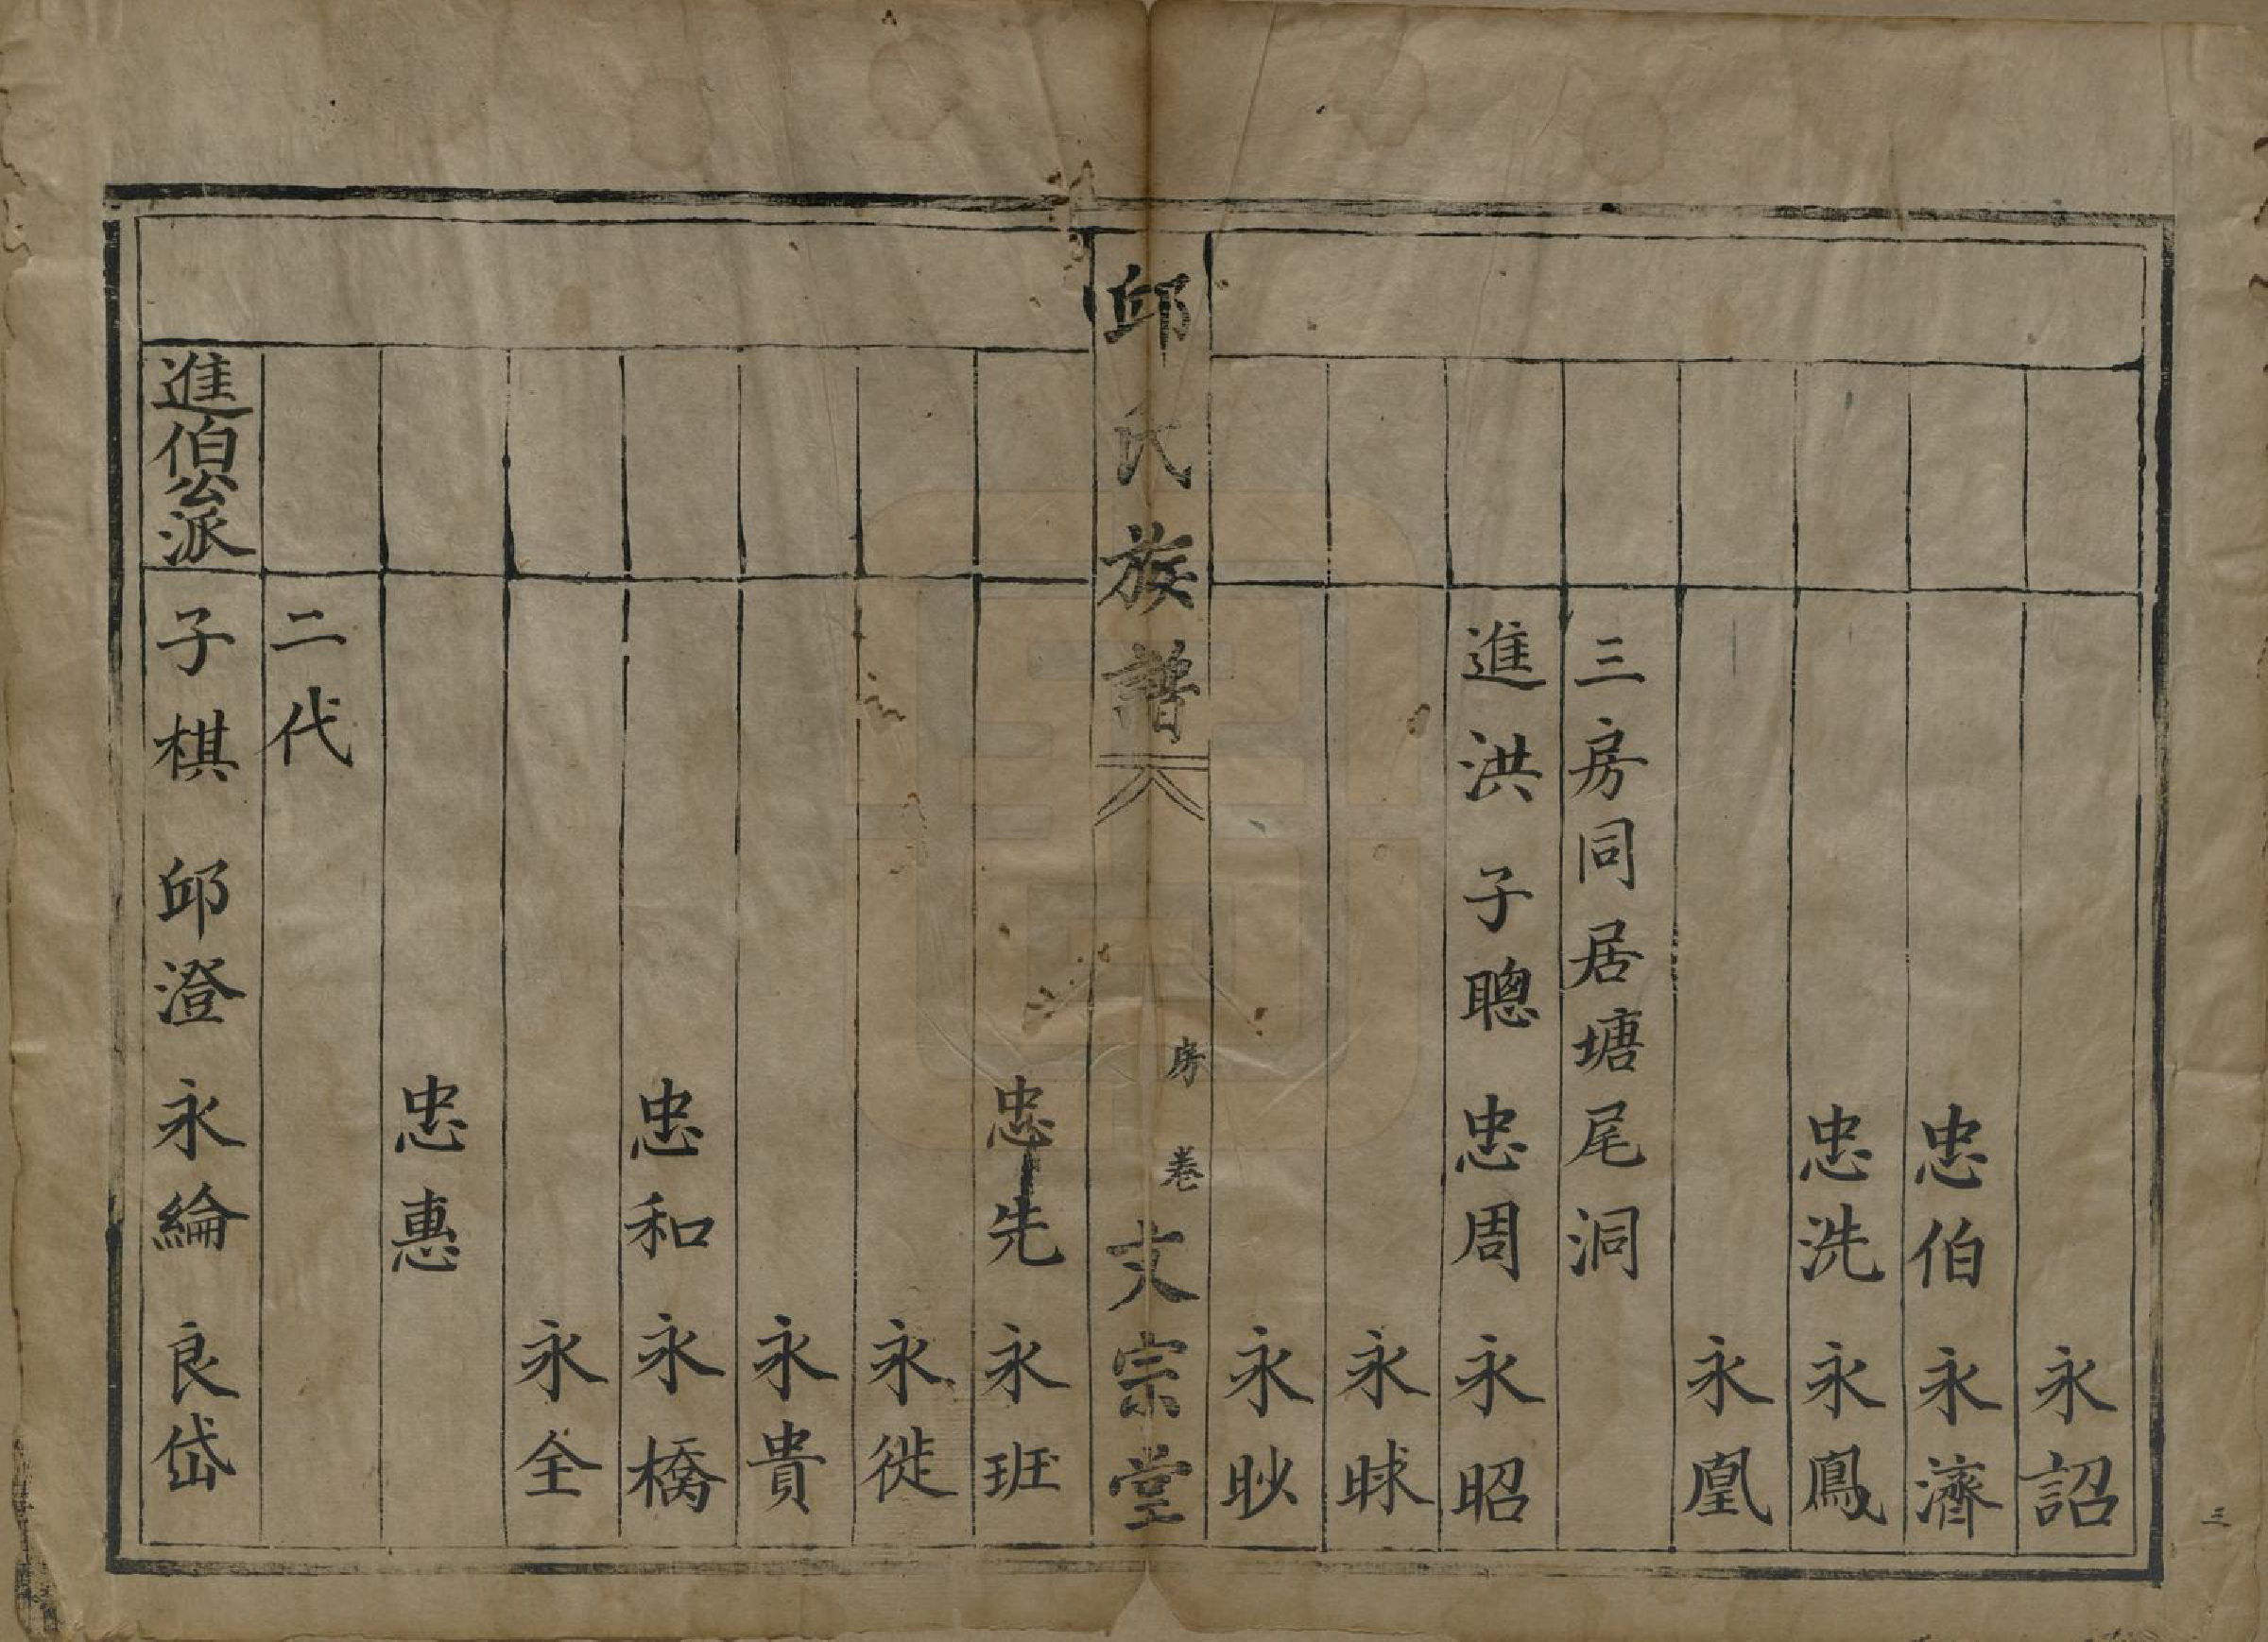 永詔
忠伯 永濟
忠洗 永鳳
永凰
三房同居塘尾洞
進洪 子聰 忠周 永昭
永眿
永眇
邱氏族譜 房 卷 文宗堂
忠先 永班
永徙
永貴
忠和 永橋
永全
忠惠
二代
進伯公派 子棋 邱澄 永綸 良岱
三